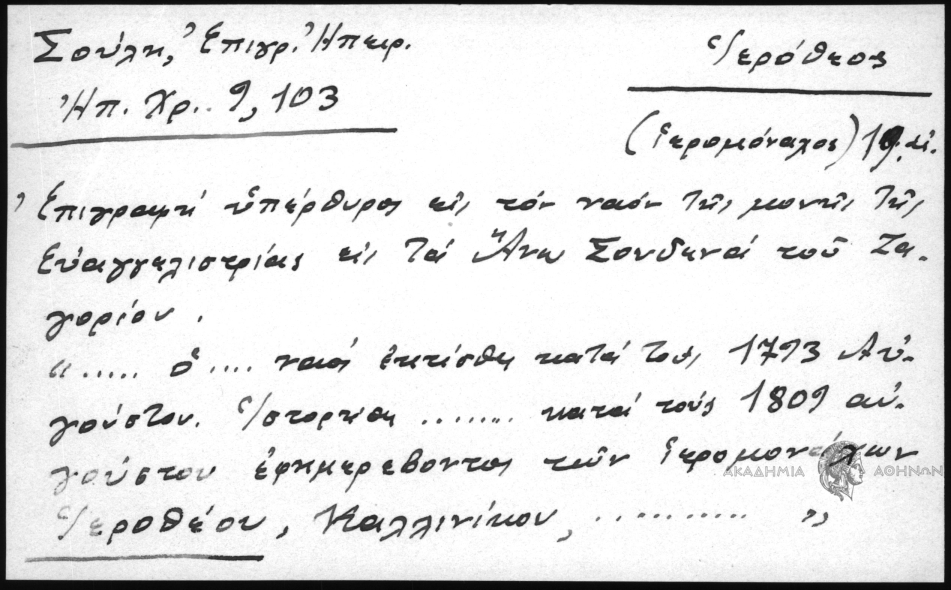 Σούλη, Ἐπιγρ. Ἠπειρ.
Ἠπ. Χρ. 9, 103
Ἱερόθεος
(ἱερομόναχος) 19. αἰ.
Ἐπιγραφή ὑπέρθυρος εἰς τόν ναόν τῆς μονῆς τῆς
Εὐαγγελιστρίας εἰς τά Ἄνω Σουδενά τοῦ Ζα-
γορίου.
"..... ὁ .... ναός ἐκτίσθη κατά τους 1793 Αὐ-
γούστου. Ἱστορτίθη ........ κατά τούς 1809 αὐ-
γούστου ἐφημερεβοντος τῶν ἱερομονάχων
Ἱεροθέου, Καλλινίκου, .......... "
ΑΚΑΔΗΜΙΑ ΑΘΗΝΩΝ